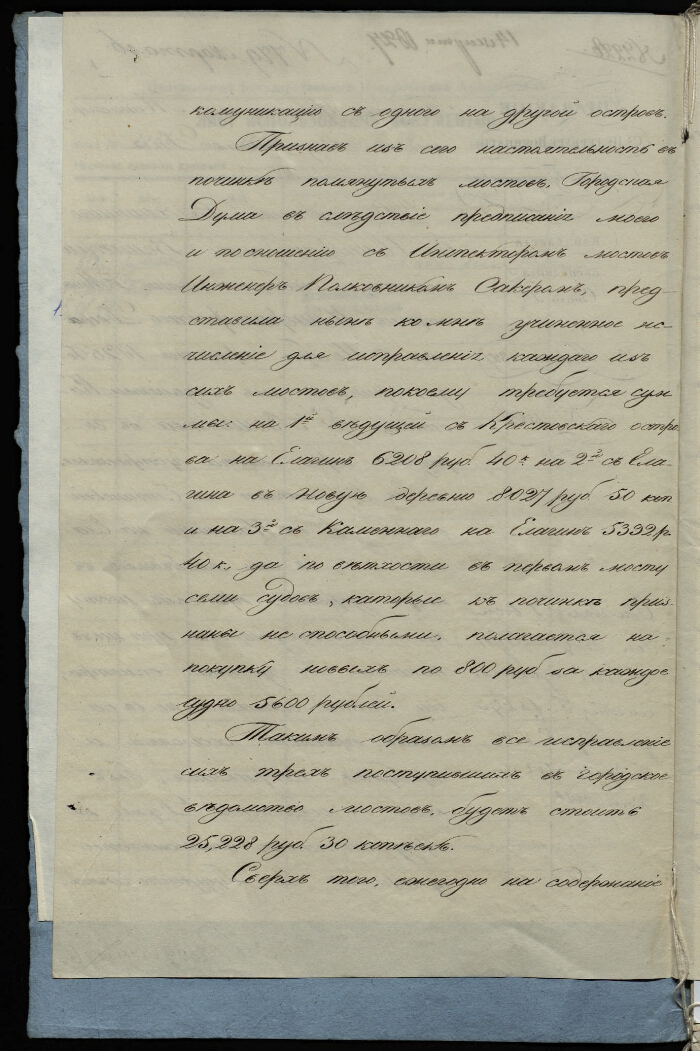 комуникацію съ одного на другой островъ.
Признавъ изъ сего настоятельность въ
починкѣ помянутыхъ мостовъ, Городская
Дума въ слѣдствіе предписанія моего
и по сношенію съ Инспекторомъ мостовъ
Инженеръ Полковникомъ Сакеромъ, пред-
ставила нынѣ ко мнѣ учиненное ис-
численіе для исправленія каждаго изъ
сихъ мостовъ, по коему требуется сум-
мы: на 1й вѣдущей съ Крестовскаго остро
ва на Елагинъ 6208 руб. 40 к. на 2й съ Ела-
гина въ Новую деревню 8027 руб 50 коп
и на 3й съ Каменнаго на Елагинъ 5392 р.
40 к, да по вѣтхости въ первомъ мосту
семи судовъ, каторые къ починкѣ приз-
наны не способными, полагается на
покупку новыхъ по 800 руб за каждое
судно 5600 рублей.
Такимъ образомъ все исправленіе
сихъ трехъ поступившихъ въ городское
вѣдомство мостовъ, будетъ стоить
25,228 руб 30 копѣекъ.
Сверхъ того, ежегодно на содержаніе